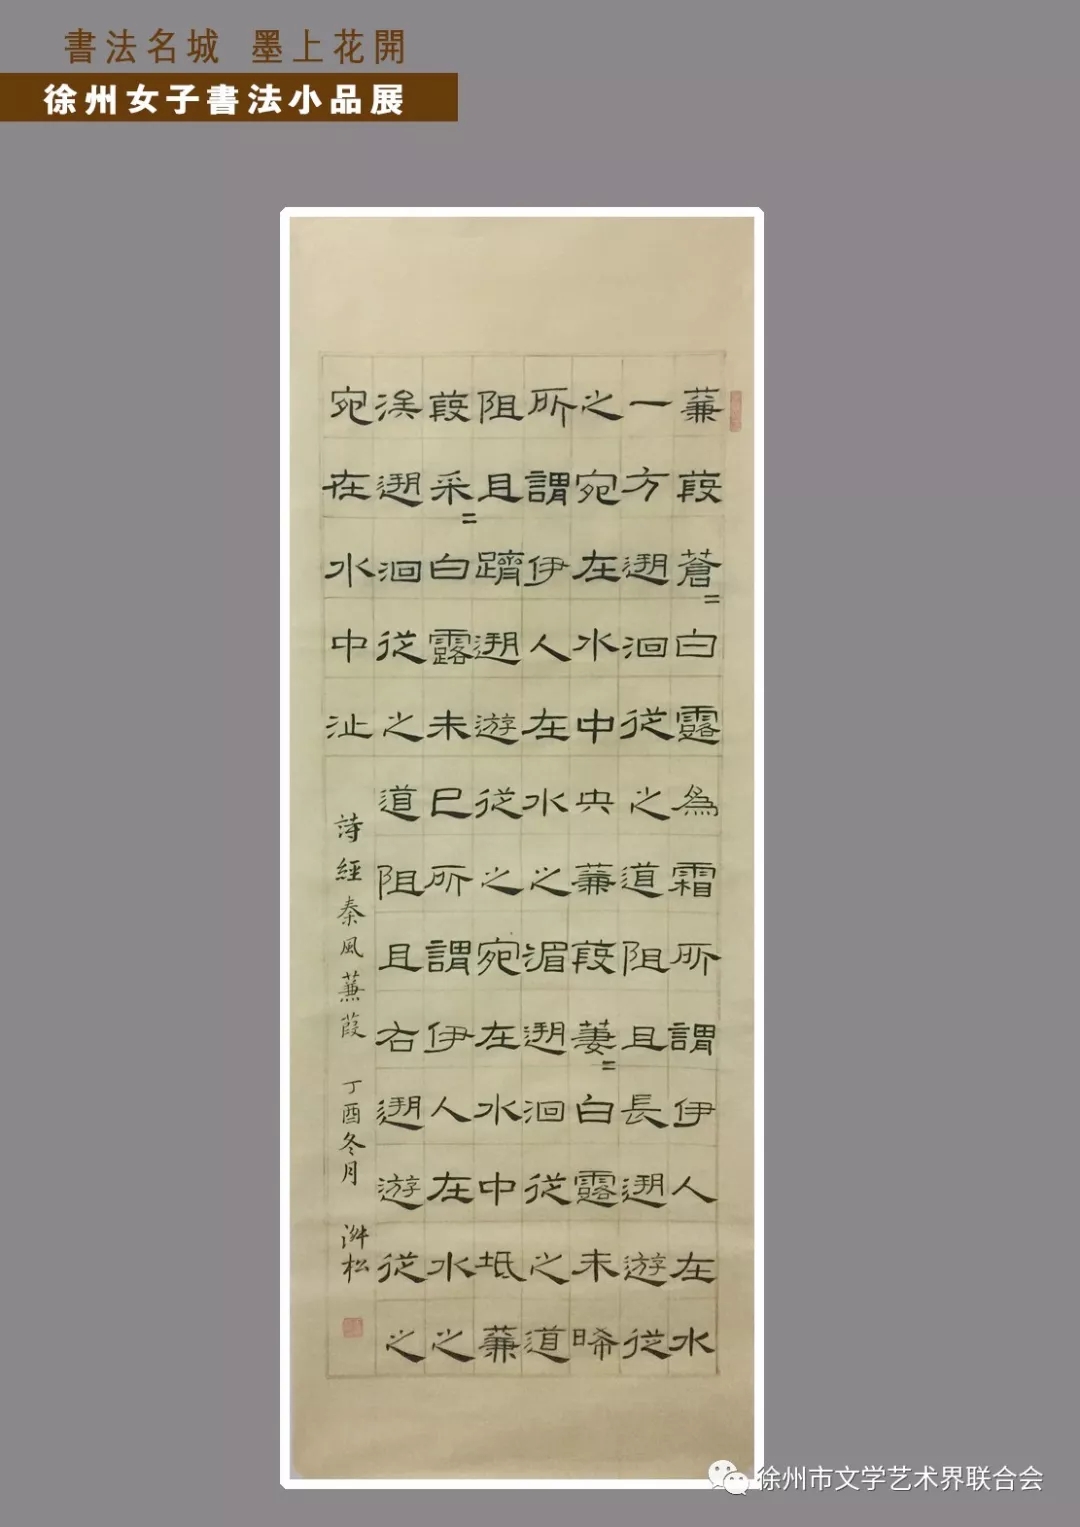 書法名城 墨上花開
徐州女子書法小品展
蒹葭蒼=白露為霜所謂伊人在水
一方遡洄從之道阻且長遡游從
之宛在水中央蒹葭萋=白露未晞
所謂伊人在水之湄遡洄從之道
阻且躋遡游從之宛在水中坻蒹
葭采=白露未已所謂伊人在水之
涘遡洄從之道阻且右遡游從之
宛在水中沚
詩經秦風蒹葭 丁酉冬月 松
徐州市文学艺术界联合会